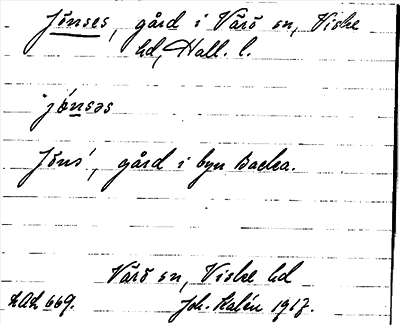 Jönses, gård i Värö sn, Viske
hd, Hall. l.
jönsəs
Jöns', gård i byn Backa.
Värö sn, Viske hd
LAL 669. Joh. Kalén 1917.